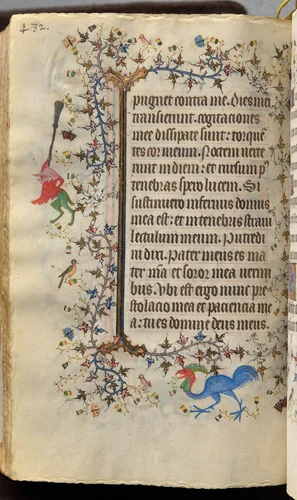 432.
pugnet contra me. Dies mei
transierunt. cogitaciones
mee dissipate sunt: torquē
tes cor meum. Noctem verte
runt in diem: et rursum p
tenebras spero lucem. Si
sustinuero infernus domus
mea est: et in tenebris straui
lectulum meum. Putredi
ni dixi. Pater meus es ma
ter mīa et soror mea uermi
bus. Vbi est ergo nunc pre
stolacio mea et paciencia me
a: tu es domine deus meus.